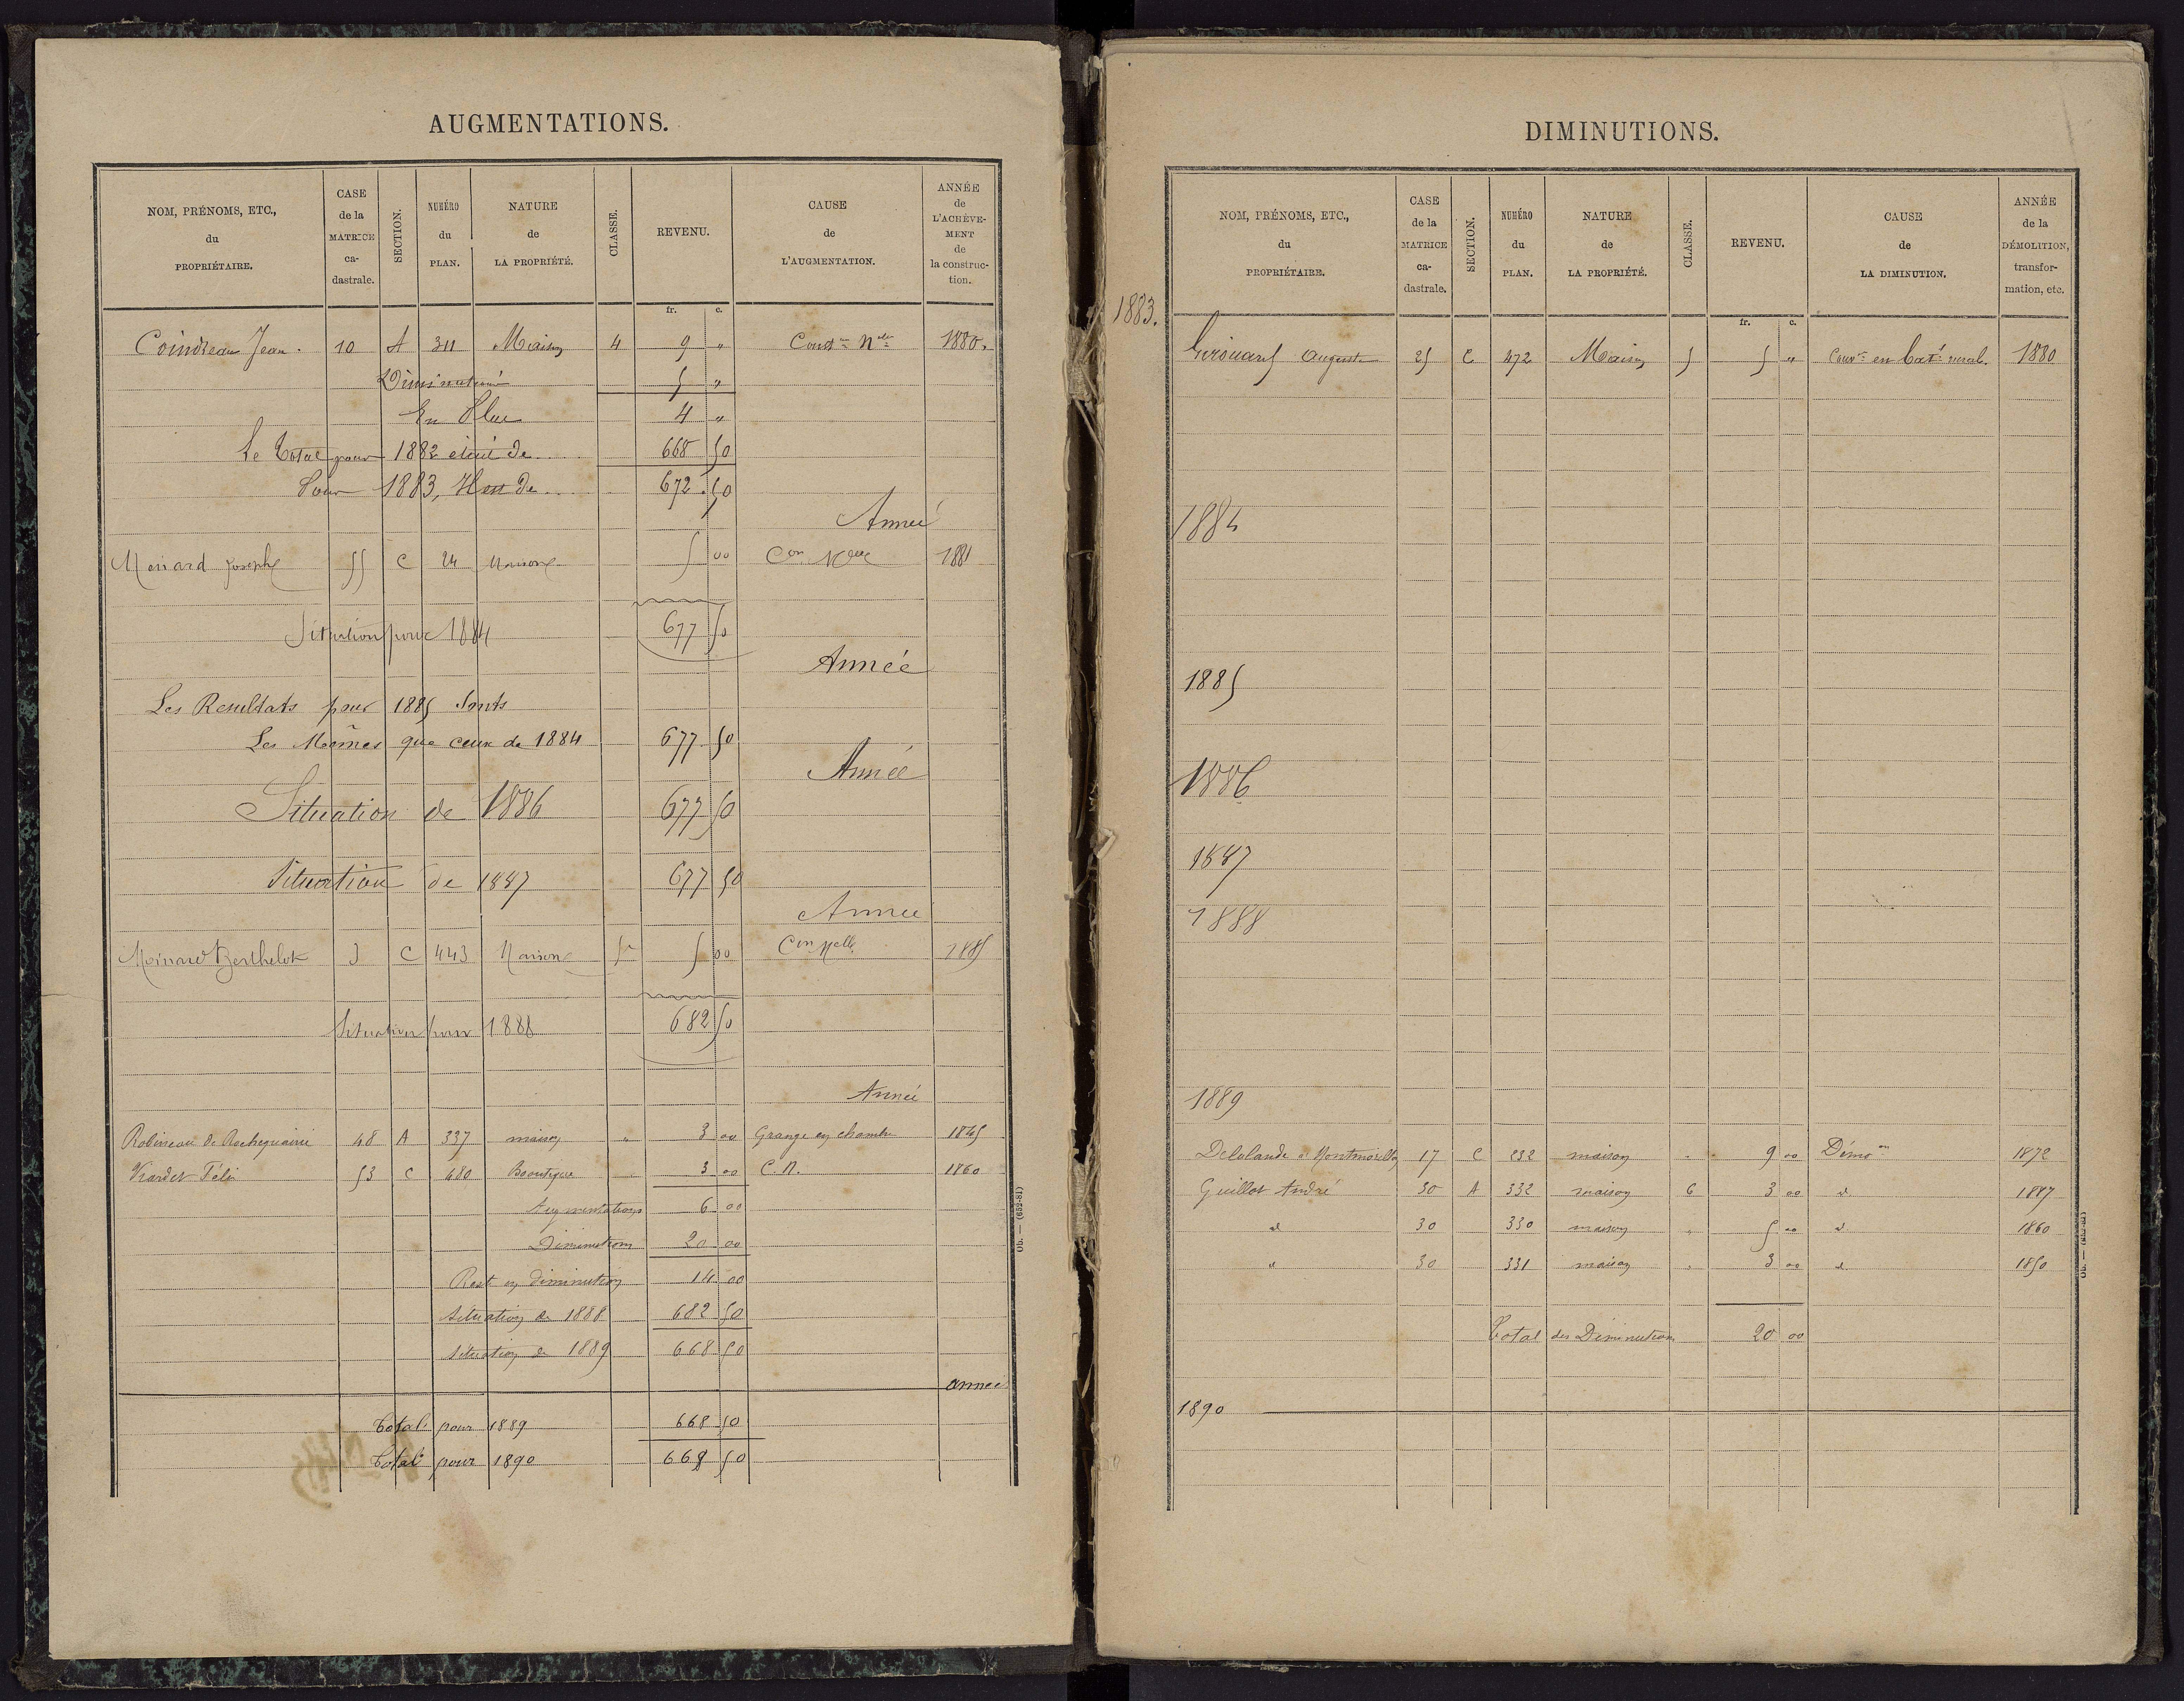 AUGMENTATIONS.
NOM, PRÉNOMS, ETC., du PROPRIÉTAIRE. CASE de la MATRICE ca-dastrale. SECTION. NUMÉRO du PLAN. NATURE de LA PROPRIÉTÉ. CLASSE. REVENU. CAUSE de L'AUGMENTATION. ANNÉE de L'ACHÈVE-MENT de la construc-tion.
fr. c.
Coindreau Jean. 10 A 311 Maison 4 9 " Conston Nelle 1880.
Diminution 5 "
En Plus 4 "
Le Total pour 1882 était de 668 50
Pour 1883, Il est de 672.50
Année
Menard Joseph 55 C 24 Maison 5 00 Con Nelle 1881
Situation pour 1884 677 50
Année
Les Resultats pour 1885 Sonts
Les Mêmes que ceux de 1884 677 50
Année
Situation de 1886 677 50
Situation de 1887 677 50
Année
Moinard Berthelot 3 C 443 Maison 5 00 Con Nelle 1885
Situation pour 1888 682 50
Année
Robineau de Rochequairie 48 A 337 maison " 3 00 Grange en chambre 1845
Viardet Félix 53 C 480 Boutique 3 00 C. N. 1860
Augmentations 6 00
Diminutions 20 00
Rest en diminution 14 00
Situation de 1888 682 50
Situation de 1889 668 50
année
Total pour 1889 668 50
Total pour 1890 668 50
Ob. — (652-81)
DIMINUTIONS.
NOM, PRÉNOMS, ETC., du PROPRIÉTAIRE. CASE de la MATRICE ca-dastrale. SECTION. NUMÉRO du PLAN. NATURE de LA PROPRIÉTÉ. CLASSE. REVENU. CAUSE de LA DIMINUTION. ANNÉE de la DÉMOLITION, transfor-mation, etc.
1883.
fr. c.
Girouard Auguste 25 C 472 Maison 5 5 " Couvie en Bat. rural. 1880
1884
1885
1886
1887
1888
1889
Delalande 17 C 232 maison " 9 00 Démon 1872
Guillot André 30 A 332 maison 6 3 00 d 1887
d 30 330 maison " 5 00 d 1860
d 30 331 maison " 3 00 d 1850
Total des Diminutions 20 00
1890